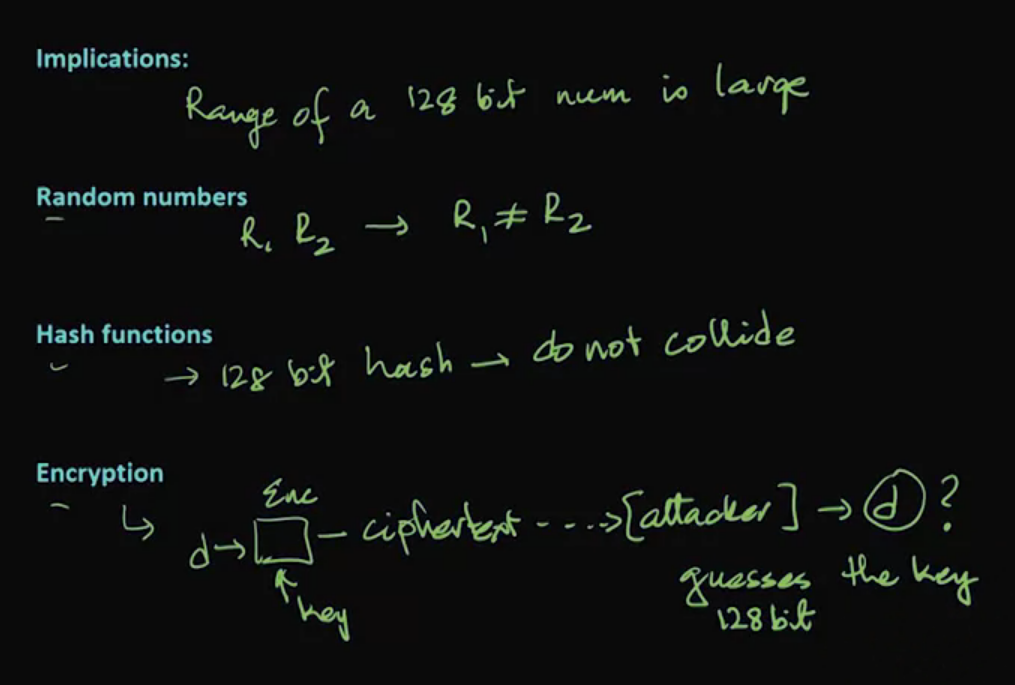 Implications:
Range of a 128 bit num is large
Random numbers
R₁ R₂ → R₁ ≠ R₂
Hash functions
→ 128 bit hash → do not collide
Encryption
Enc
d → □ – ciphertext ----> [attacker] → d ?
key
guesses the key
128 bit